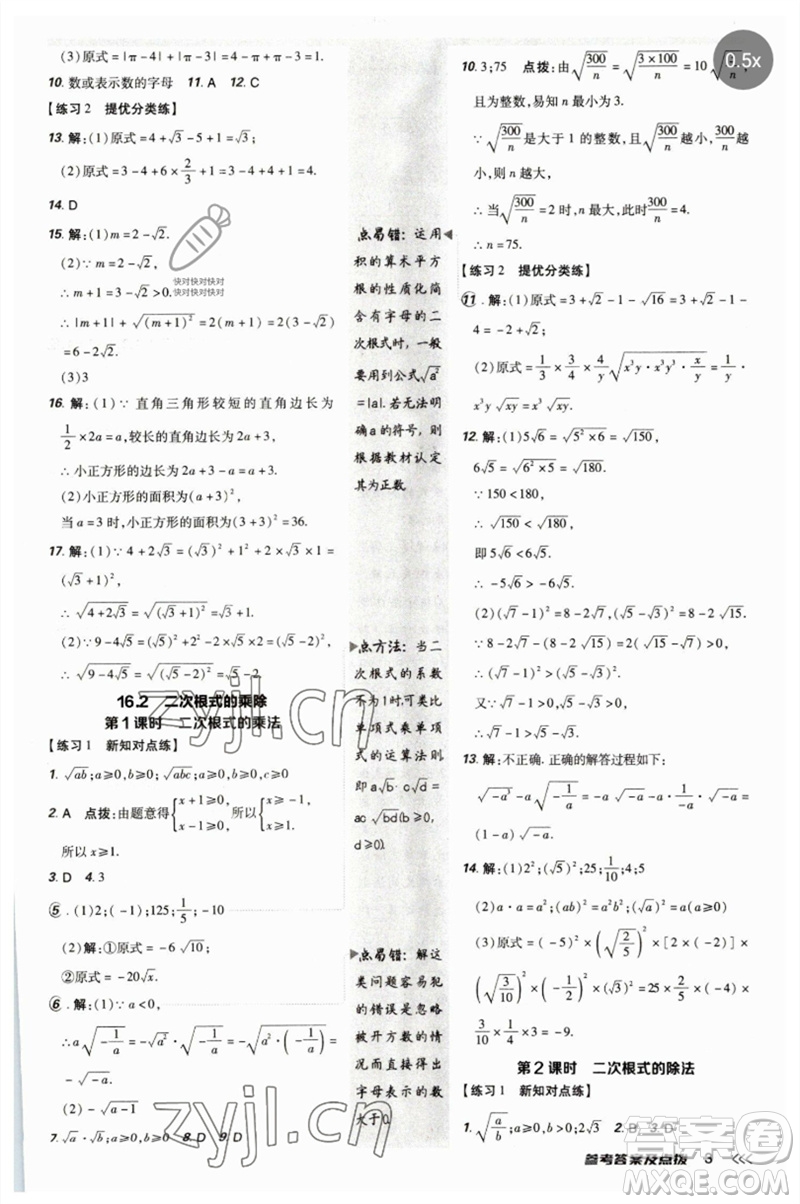 (3)原式=|π-4|+|π-3|=4-π+π-3=1.
10. 数或表示数的字母 11. A 12. C
【练习2 提优分类练】
13. 解:(1)原式=4+√3-5+1=√3;
(2)原式=3-4+6×2/3+3=3-4+4+3=6.
14. D
15. 解:(1)m=2-√2.
(2)∵m=2-√2>0,
∴|m+1|+√((m+1)²)=2(m+1)=2(3-√2)
=6-2√2.
(3)3
16. 解:(1)∵直角三角形较短的直角边长为
1/2×2a=a,较长的直角边长为2a+3,
∴小正方形的边长为2a+3-a=a+3.
(2)小正方形的面积为(a+3)²,
当a=3时,小正方形的面积为(a+3)²=36.
17. 解:(1)∵4+2√3=(√3)²+1²+2×√3×1=
(√3+1)²,
∴√(4+2√3)=√((√3+1)²)=√3+1.
(2)∵9-4√5=(√5)²+2²-2×√5×2=(√5-2)²,
∴√(9-4√5)=√((√5-2)²)=√5-2.
16.2 二次根式的乘除
第1课时 二次根式的乘法
【练习1 新知对点练】
1. √ab;a≥0,b≥0;√abc;a≥0,b≥0,c≥0
2. A 点拨:由题意得{x+1≥0, x-1≥0,所以{x≥-1, x≥1.
所以x≥1.
3. D 4. 3
5. (1)2;(-1);125;1/5;-10
(2)解:①原式=-6√10.
②原式=-20√x.
6. 解:(1)∵a<0,
∴a√(-1/a)=-√a²·√(-1/a)=-√(a²·(-1/a))
=-√-a.
(2)-√2
7. √a·√b;a≥0,b≥0 8. D 9. D
点易错:运用
积的算术平方
根的性质化简
含有字母的二
次根式时,一般
要用到公式√a²
=|a|.若无法明
确a的符号,则
根据教材认定
其为正数.
点方法:当二
次根式的系数
不为1时,可类
比单项式乘单项
式的运算法则,
即a√b·c√d=
ac√bd(b≥0,
d≥0).
点易错:解这
类问题容易犯
的错误是忽略
被开方数的情
况而直接得出
字母表示的数
大于0.
10. 3;75 点拨:∵√(300/n)=√(3×100/n)=10√(3/n),
且为整数,易知n最小为3.
∵√(300/n)是大于1的整数,√(300/n)越小,300/n越
小,则n越大,
∴当√(300/n)=2时,n最大,此时300/n=4.
∴n=75.
【练习2 提优分类练】
11. 解:(1)原式=3+√2-1-√16=3+√2-1-
4=-2+√2;
(2)原式=1/3×3/4×4/y√(x³y·x³y³·x/y)=1/y·
x³y√xy=x³√xy.
12. 解:(1)5√6=√(5²×6)=√150,
6√5=√(6²×5)=√180.
∵150<180,
∴√150<√180,
即5√6<6√5.
∴-5√6>-6√5.
(2)∵(√7-1)²=8-2√7,(√5-√3)²=8-
2√15,2√7<2√15,
∴8-2√7>8-2√15.
∴(√7-1)²>(√5-√3)².
又∵√7-1>0,√5-√3>0,
∴√7-1>√5-√3.
13. 解:不正确.正确的解答过程如下:
√(-a³)-a√(-1/a)=-a√-a-a√-a·(-1/a)=
(1-a)√-a.
14. 解:(1)2²;(√5)²;25;1/10;4;5
(2)a·a=a²;(ab)²=a²b²;(√a)²=a(a≥0)
(3)原式=(-5)²×(√(2/5))²+(√(3/10))²×[×(-2)]²×
(√(3/10))²×(√(2/5))²=25×2/5+3/10×4×
3/10+3/10×4=-9.
第2课时 二次根式的除法
【练习1 新知对点练】
1. √(a/b);a≥0,b>0 2. B 3. D
参考答案及点拨 3
0.5x
快对快对快对快对
快对快对快对快对
zyjl.cn
zyjl.cn
答案圈
MXQE.COM